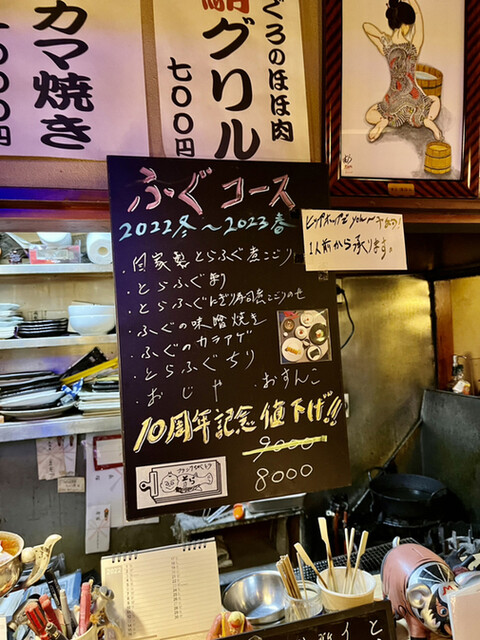 カマ焼き
グリル
七〇〇円
ぐろのほほ肉
ふぐコース
2022冬～2023春
・自家製とらふぐ煮こごり
・とらふぐ刺
・とらふぐにぎり寿司煮こごりのせ
・ふぐの味噌焼き
・ふぐのカラアゲ
・とらふぐちり
・おじや ・おすんこ
10周年記念値下げ!!
9000
8000
1人前から承ります。